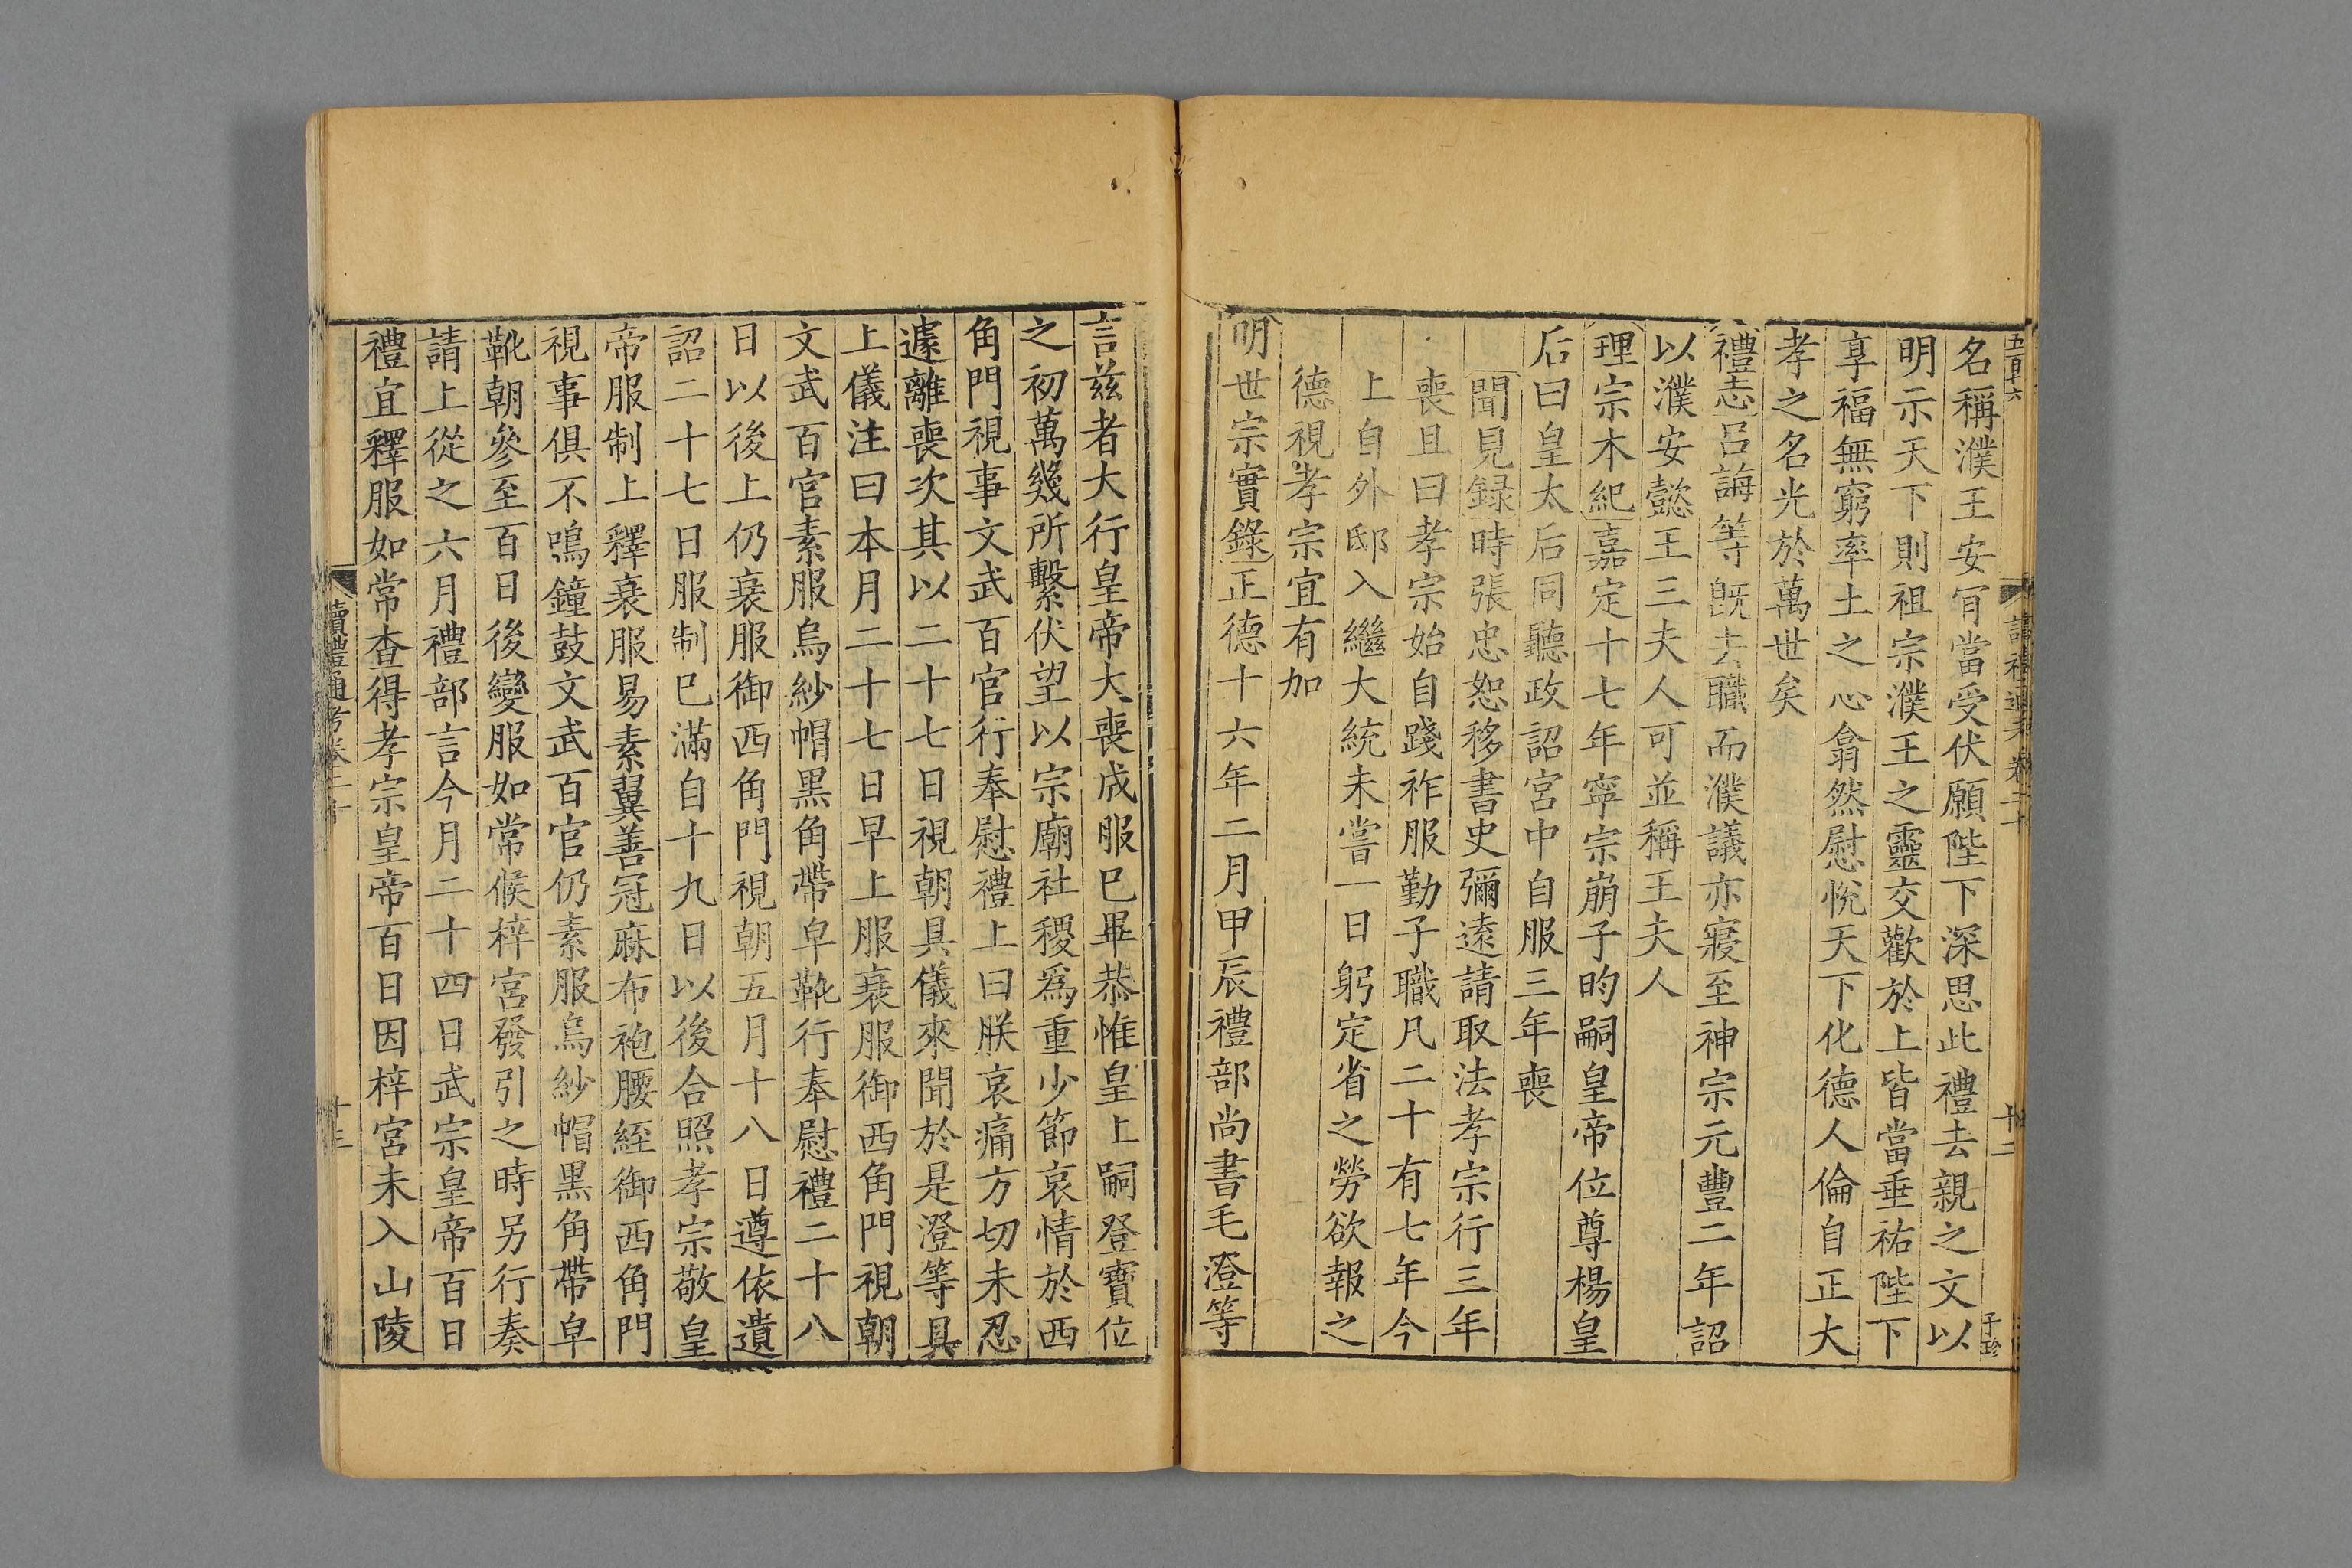 五百十六
讀禮通考卷二十
十二
子珍
名稱濮王安肎當受伏願陛下深思此禮去親之文以
明示天下則祖宗濮王之靈交歡於上皆當垂祐陛下
享福無窮率土之心翕然慰悅天下化德人倫自正大
孝之名光於萬世矣
禮志呂誨等旣去職而濮議亦寢至神宗元豐二年詔
以濮安懿王三夫人可並稱王夫人
理宗本紀嘉定十七年寧宗崩子昀嗣皇帝位尊楊皇
后曰皇太后同聽政詔宮中自服三年喪
聞見録時張忠恕移書史彌遠請取法孝宗行三年
喪且曰孝宗始自踐祚服勤子職凡二十有七年今
上自外邸入繼大統未嘗一日躬定省之勞欲報之
德視孝宗宜有加
明世宗實錄正德十六年二月甲辰禮部尚書毛澄等
言兹者大行皇帝大喪成服巳畢恭惟皇上嗣登寶位
之初萬幾所繫伏望以宗廟社稷爲重少節哀情於西
角門視事文武百官行奉慰禮上曰朕哀痛方切未忍
遽離喪次其以二十七日視朝具儀來聞於是澄等具
上儀注曰本月二十七日早上服衰服御西角門視朝
文武百官素服烏紗帽黑角帶皁靴行奉慰禮二十八
日以後上仍衰服御西角門視朝五月十八日遵依遺
詔二十七日服制巳滿自十九日以後合照孝宗敬皇
帝服制上釋衰服易素翼善冠麻布袍腰絰御西角門
視事俱不鳴鐘鼓文武百官仍素服烏紗帽黑角帶皁
靴朝參至百日後變服如常候梓宮發引之時另行奏
請上從之六月禮部言今月二十四日武宗皇帝百日
禮宜釋服如常查得孝宗皇帝百日因梓宮未入山陵
讀禮通考卷二十
十三